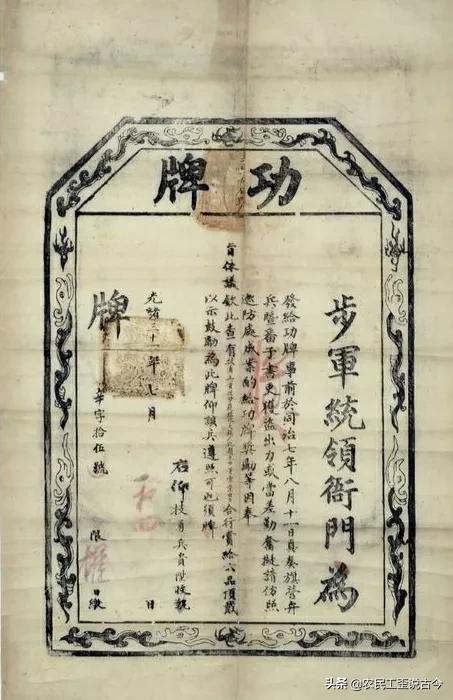 功牌
步軍統領衙門為
發給功牌事前於同治七年八月十一日具奏旗營弁
兵暨番子書吏獲盜出力或當差勤奮擬請仿照
巡防處成案酌給功牌獎勵等因奉
旨依議
欽此查有
合行賞給六品頂戴
以示鼓勵為此牌仰該兵遵照可也須牌
右仰技勇兵
光緒三十一年七月 日
牌
字拾伍號
限 日繳
头条 @农民工歪说古今